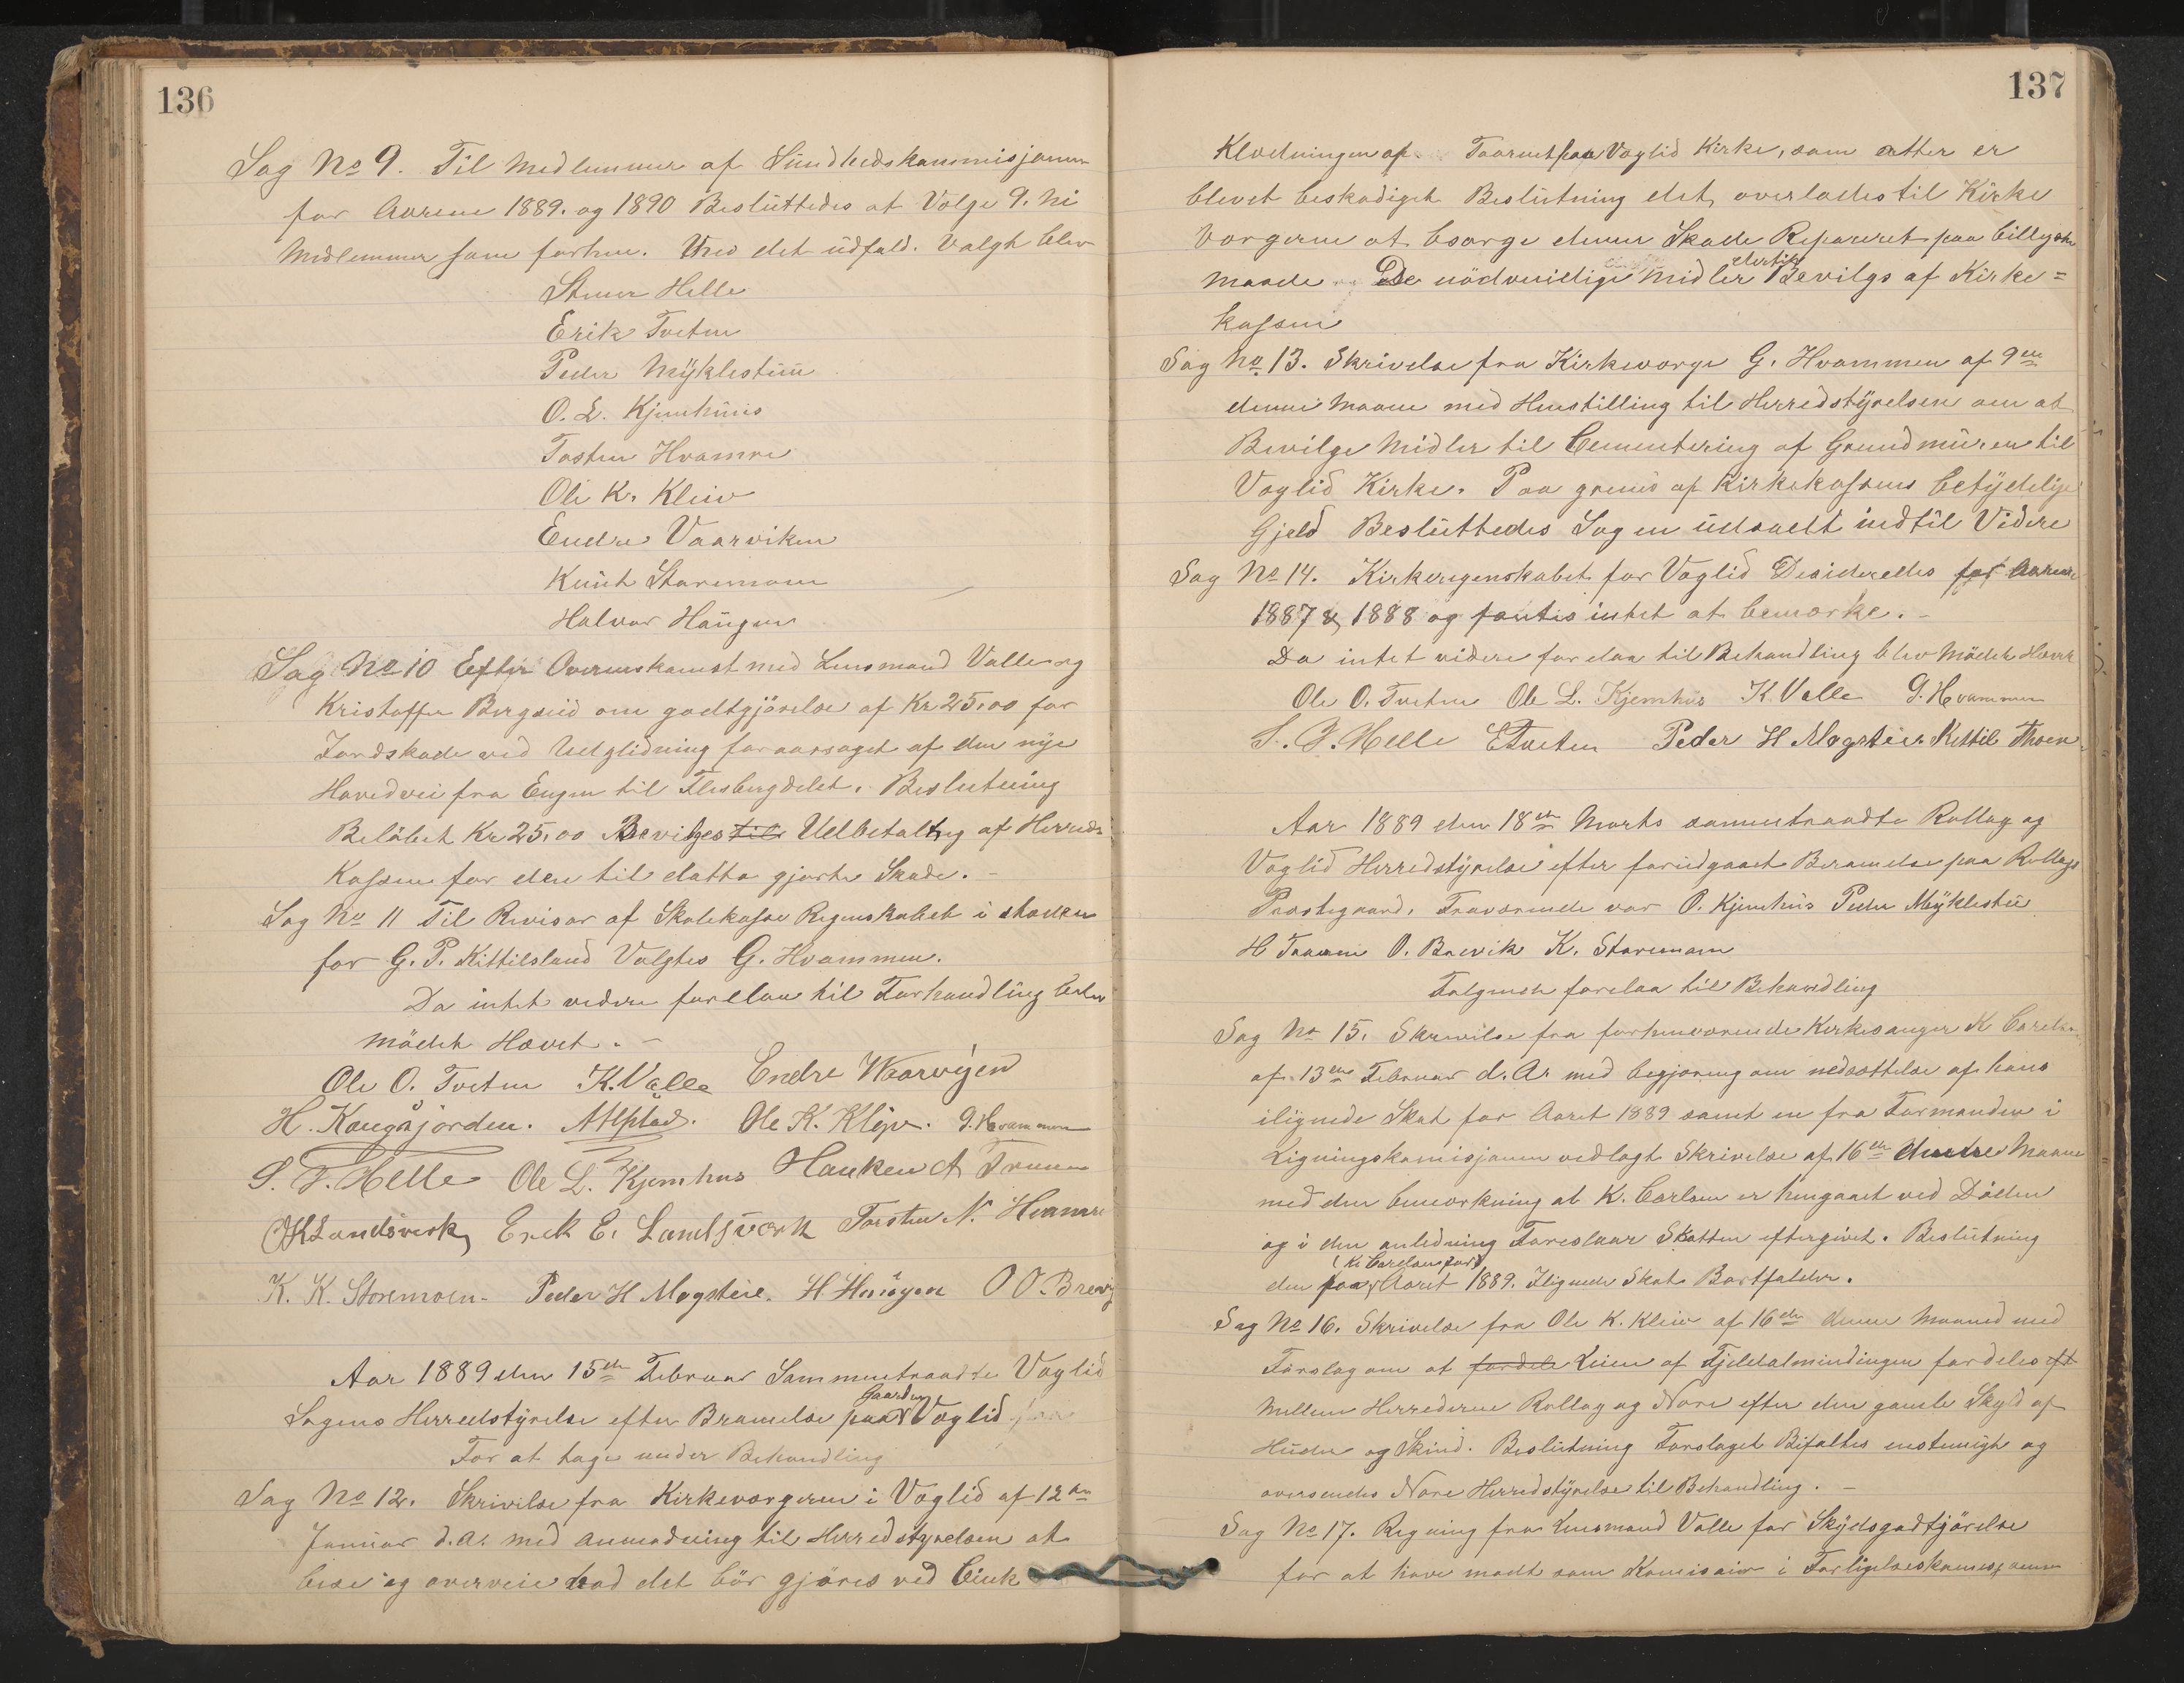 136
Sag No 9. Til Medlemmer af Sundhedskommisjonen
for Aarene 1889. og 1890 Besluttedes at Vælge 9. Ni
Medlemmer som forhen. Med det udfald. Valgt blev
Stener Helle
Erik Tveten
Peder Myklestuu
O. L. Kjemhuus
Tosten Hvamre
Ole K. Kleiv
Endre Vaarviken
Knut Staremoen
Halvor Haugen
Sag No 10 Efter Overenskomst med Lensmand Valle og
Kristoffer Bergseid om godtgjörelse af Kr 25,00 for
Jordskade ved Udglidning foraarsaget af den nye
Hovedvei fra Engen til Flesbergdelet. Beslutning
Belöbet Kr 25,00 Bevilges til Udbetaling af Herreds
Kassen for den til datto gjorte Skade. -
Sag No 11 Til Revisor af Skolekasse Regnskabet i steden
for G. P. Kittilsland Valgtes G. Hvammen.
Da intet videre forelaa til Forhandling blev
mödet Hævet. -
Ole O. Tveten K. Valle Endre Waarvigen
H. Kongsjorden. Ole K. Klejv. G. Hvammen
S. T. Helle Ole L. Kjemhus Hauken A Traaen
OK Landsverk, Erik E. Landsverk Torsten N. Hvamre
K. K. Storemoen - Peder H Mogsteie. H Haugen O O. Brevig
Aar 1889 den 15de Februar Sammentraadte Væglid
Sogens Herredstyrelse efter Bramelse paa Gaarden Væglid
For at tage under Behandling
Sag No 12. Skrivelse fra Kirkeværgeren i Væglid af 12te
Januar d. A. med anmodning til Herredstyrelsen at
bese og overveie hvad det bör gjöres ved
137
Klædningen af Taarnet paa Væglid Kirke, som atter er
blevet beskadiget Beslutning det overlades til Kirke
værgerne at besørge denne Skade Reparert paa billigste
maade De nödvendige Midler dertil Bevilges af Kirke=
kassen
Sag No 13. Skrivelse fra Kirkeværge G. Hvammen af 9de
denne Maane med Henstilling til Herredstyrelsen om at
Bevilge Midler til Cementering af Grundmuren til
Væglid Kirke. Paa grund af Kirkekassens betydelige
Gjeld Besluttedes Sagen udsadt indtil Videre
Sag No 14. Kirkeregnskabet for Væglid Desideredes for Aarene
1887 & 1888 og fantes intet at bemærke. -
Da intet videre forelaa til Behandling blev Mödet Hævet
Ole O. Tveten Ole L. Kjemhus K. Valle G. Hvammen
S. T. Helle E Tveten Peder H Mogsteie Kettil Thoen
Aar 1889 den 18de Marts sammentraadte Rollag og
Væglid Herredstyrelse efter foriedgaaet Beramelse paa Rollags
Præstegaard. Fraværende var O. Kjemhus Peder Myklestu
H Traaen O. Brevik K. Staremoen
Følgende forelaa til Behandling
Sag No 15. Skrivelse fra forhenværende Kirkesanger K Carlsen
af 13de Februar d. A. med begjæring om nedsættelse af hans
ilignede Skat for Aaret 1889 samt en fra Formanden i
Ligningskomisjonen vedlagt Skrivelse af 16de denne Maane
med den bemærkning at K. Carlsen er hengaaet ved Döden
og i den anledning Foreslaar Skatten eftergivet. Beslutning
(K. Carlsen for)
den paa Aaret 1889. Ilignede Skat Bortfalder.
Sag No 16. Skrivelse fra Ole K. Kleiv af 16de denne Maaned med
Forslag om at fordele Leien af Fjeldalmindingen fordeles eft
mellem Herrederne Rollag og Nore efter den gamle Skyld af
Huder og Skind. Beslutning Forslaget Bifaltes enstemigt og
oversendes Nore Herredstyrelse til Behandling. -
Sag No 17. Regning fra Lensmand Valle for Skydsgodtjörelse
for at have mødt som Komisair i Forligelseskomisjonen